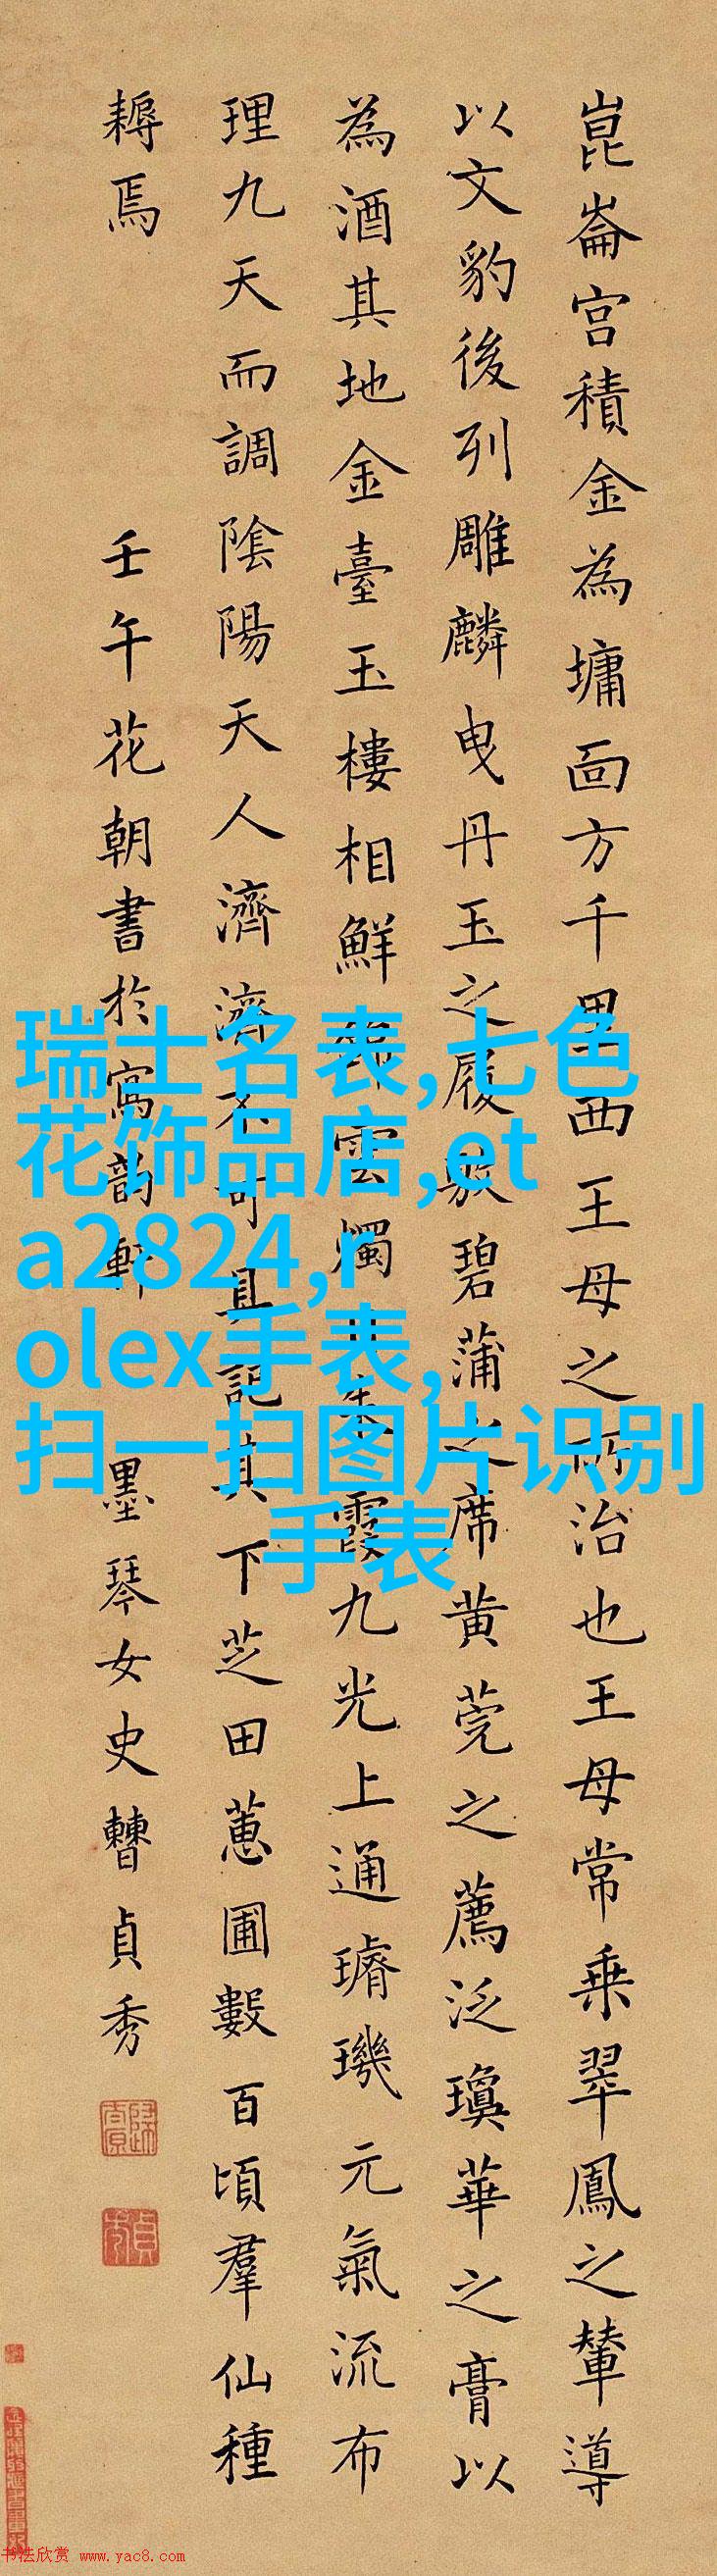 崑崙宮積金為墉面方千里西王母之所治也王母常乘翠鳳之輦導
以文豹後列雕麟曳丹玉之履敷碧蒲之席黃莞之薦泛瓊華之膏以
為酒其地金臺玉樓相鮮雲燭朱霞九光上通璿璣元氣流布
理九天而調陰陽天人濟濟不可具記其下芝田蕙圃數百頃羣仙種
耨焉
壬午花朝書於寫韵軒
墨琴女史曹貞秀
瑞士名表,七色
花饰品店,et
a2824,r
olex手表,
扫一扫图片识别
手表
书法欣赏 www.yac8.com